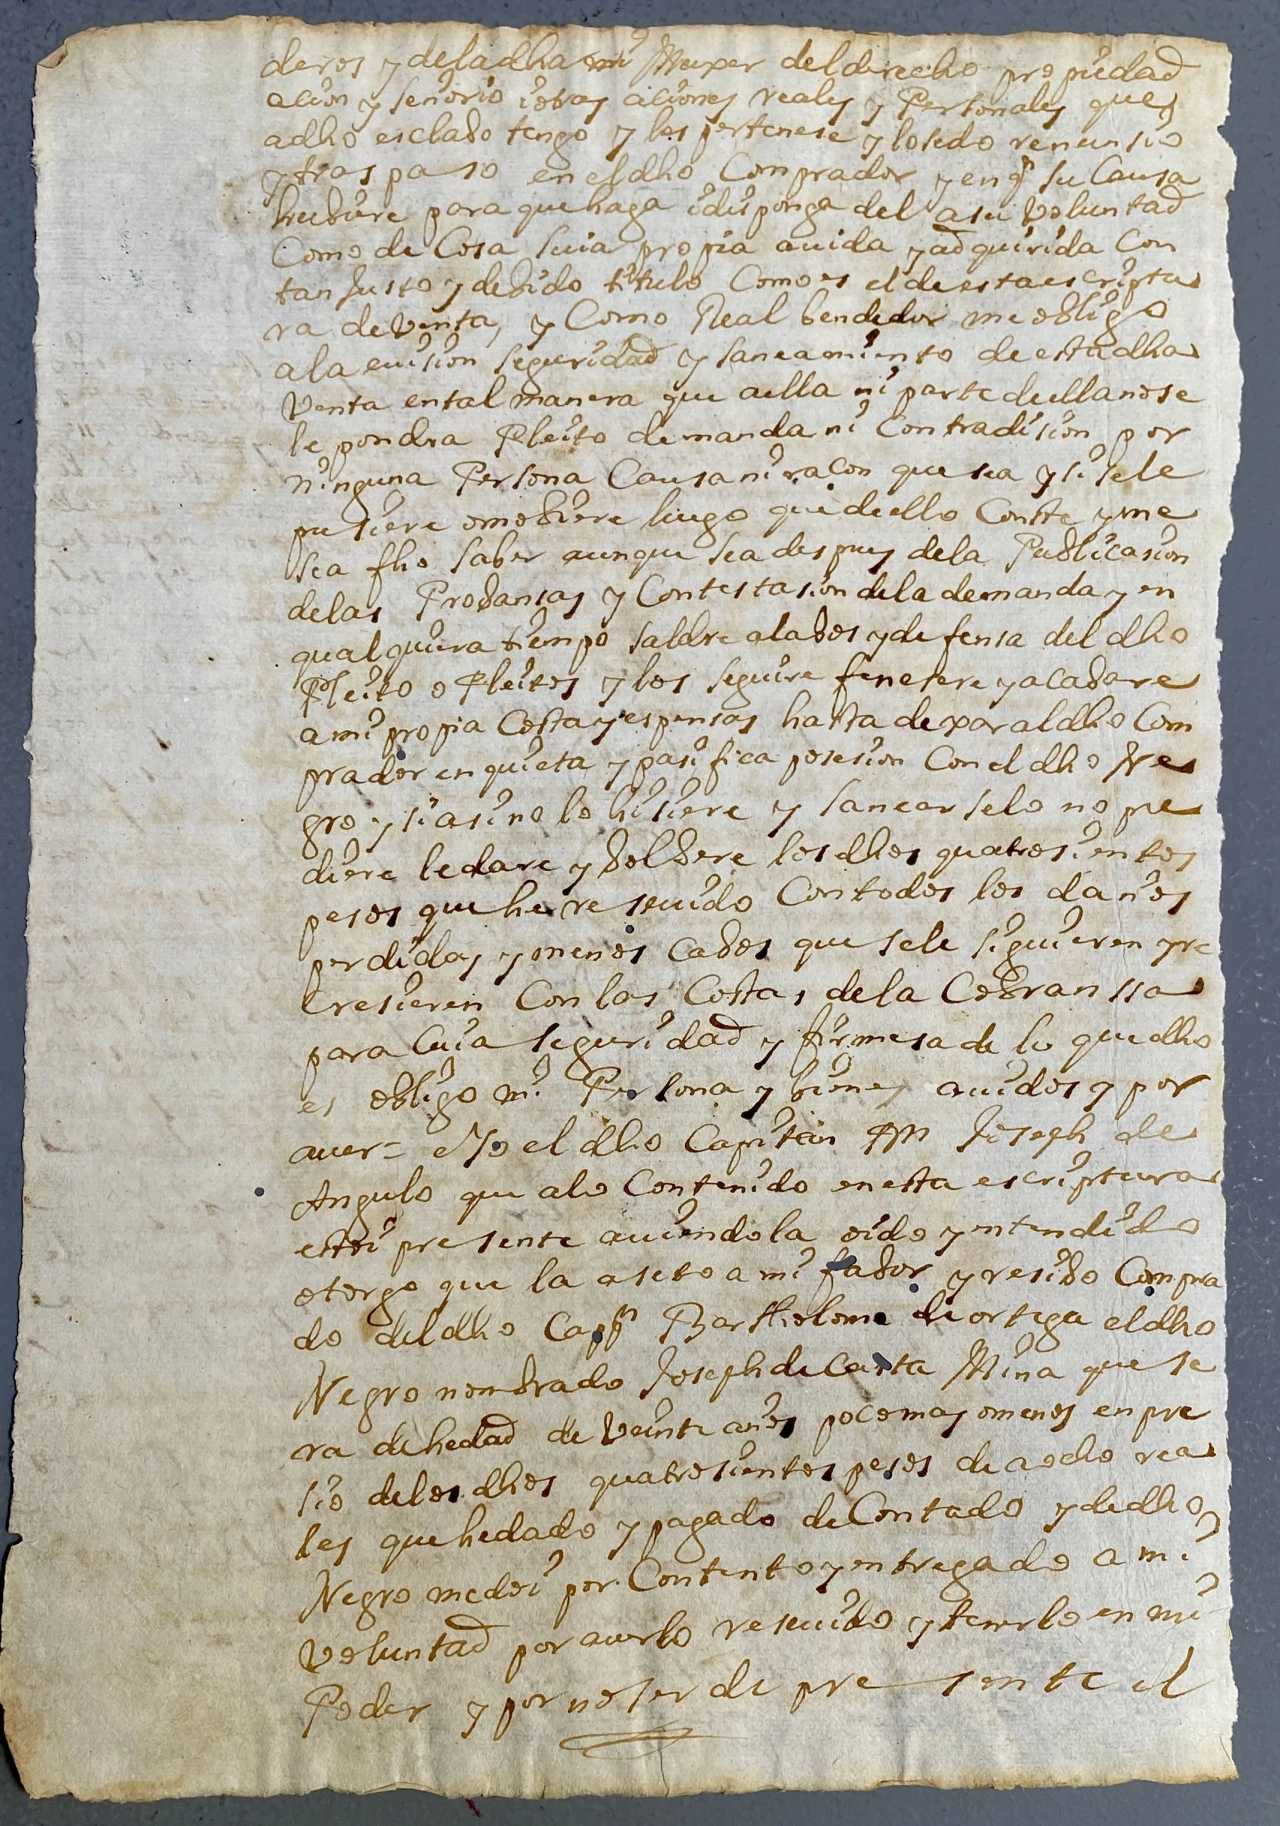 deros y de la dha mi Muxer del derecho propiedad
acion y señorio i otras aciones reales y Personales que
a dho esclabo tengo y les pertenese y lo sedo renunsio
y traspaso en el dho Comprador y en q̃ su Causa
hubiere para que haga i disponga del a su Voluntad
Como de Cosa suia propia auida y adquirida Con
tan Justo y debido titulo Como es el de esta escriptu
ra de Venta, y Como Real bendedor me obligo
a la euision seguridad y saneamiento de esta dha
Venta en tal manera que a ella ni parte de ella no se
le pondra Pleito demanda ni Contradision por
ninguna Persona Causa ni raçon que sea y si se le
pusiere o mobiere luego que de ello Conste y me
sea fho saber aunque sea despues de la Publicasion
de las Probansas y Contestasion de la demanda y en
qualquiera tiempo saldre a la bos y defensa del dho
Pleito o Pleitos y los seguire fenesere y acabare
a mi propia Costa y espensas hasta dexar al dho Com
prador en quieta y pasifica posesion Con el dho Ne
gro y si asi no lo hisiere y sanearselo no pu
diere le dare y bolbere los dhos quatrosientos
pesos que he reseuido Con todos los daños
perdidas y menos Cabos que se le siguieren y re
Cresieren Con las Costas de la Cobranssa
para Cuia seguridad y firmesa de lo que dho
es obligo mi Persona y bienes auidos y por
auer = e Yo el dho Capitan Joseph de
Angulo que a lo Contenido en esta escriptura
estoi presente auiendola oido y entendido
otorgo que la aseto a mi fabor y resibo Compra
do del dho Capp.n Bartholome de ortega el dho
Negro nombrado Joseph de Casta Mina que se
ra de hedad de Veinte años poco mas o menos en pre
sio de los dhos quatrosientos pesos de a ocho rea
les que he dado y pagado de Contado y de dho
Negro me doi por Contento y entregado a mi
Voluntad por auerlo reseuido y tenerlo en mi
Poder y por no ser de presente el